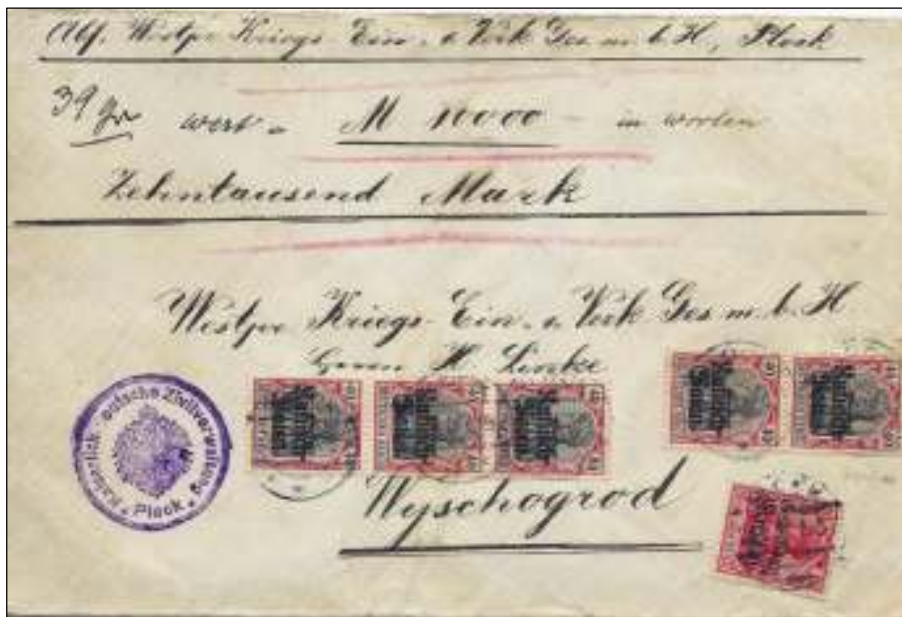 Abs. Westpr Kriegs Ein- u Verk Ges m. b. H., Plock
39 gr wert = M 10000 - in worten
Zehntausend Mark
Westpr Kriegs-Ein- u Verk Ges m. b. H
Herrn H Linke
Wyschogrod
Kaiserlich Deutsche Zivilverwaltung
Plock